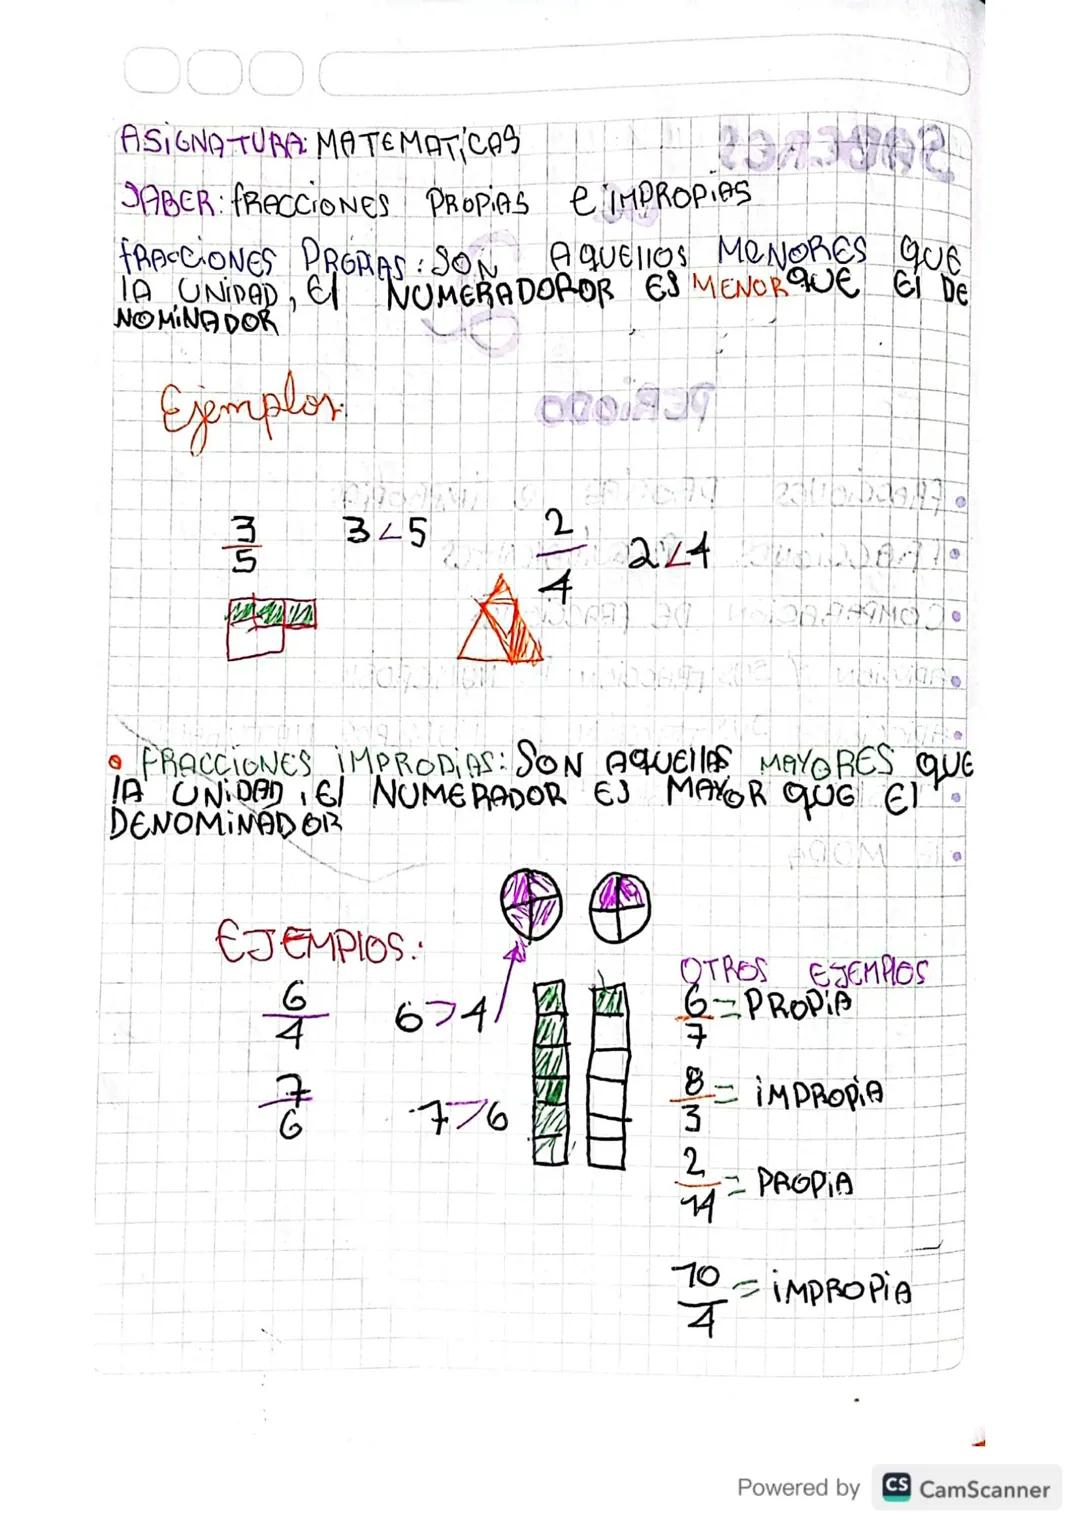 ASIGNATURA: MATEMATICAS
SABER: fRACCIONES PROPIAS e IMPROPIAS
fRACCIONES PROPIAS: SON AQUEllOS MENORES QUE
lA UNIDAD, El NUMERADOROR ES MENOR QUE El DE
NOMINADOR
Ejemplos:
3/5 3<5 2/4 2<4
• FRACCIONES IMPROPIAS: SON AQUEllAS MAYORES QUE
lA UNIDAD, El NUMERADOR ES MAYOR QUE El
DENOMINADOR
EJEMPlOS:
6/4 6>4
7/6 7>6
OTROS EJEMPlOS
6/7 = PROPIA
8/3 = IMPROPIA
2/14 = PROPIA
10/4 = IMPROPIA
Powered by CS CamScanner